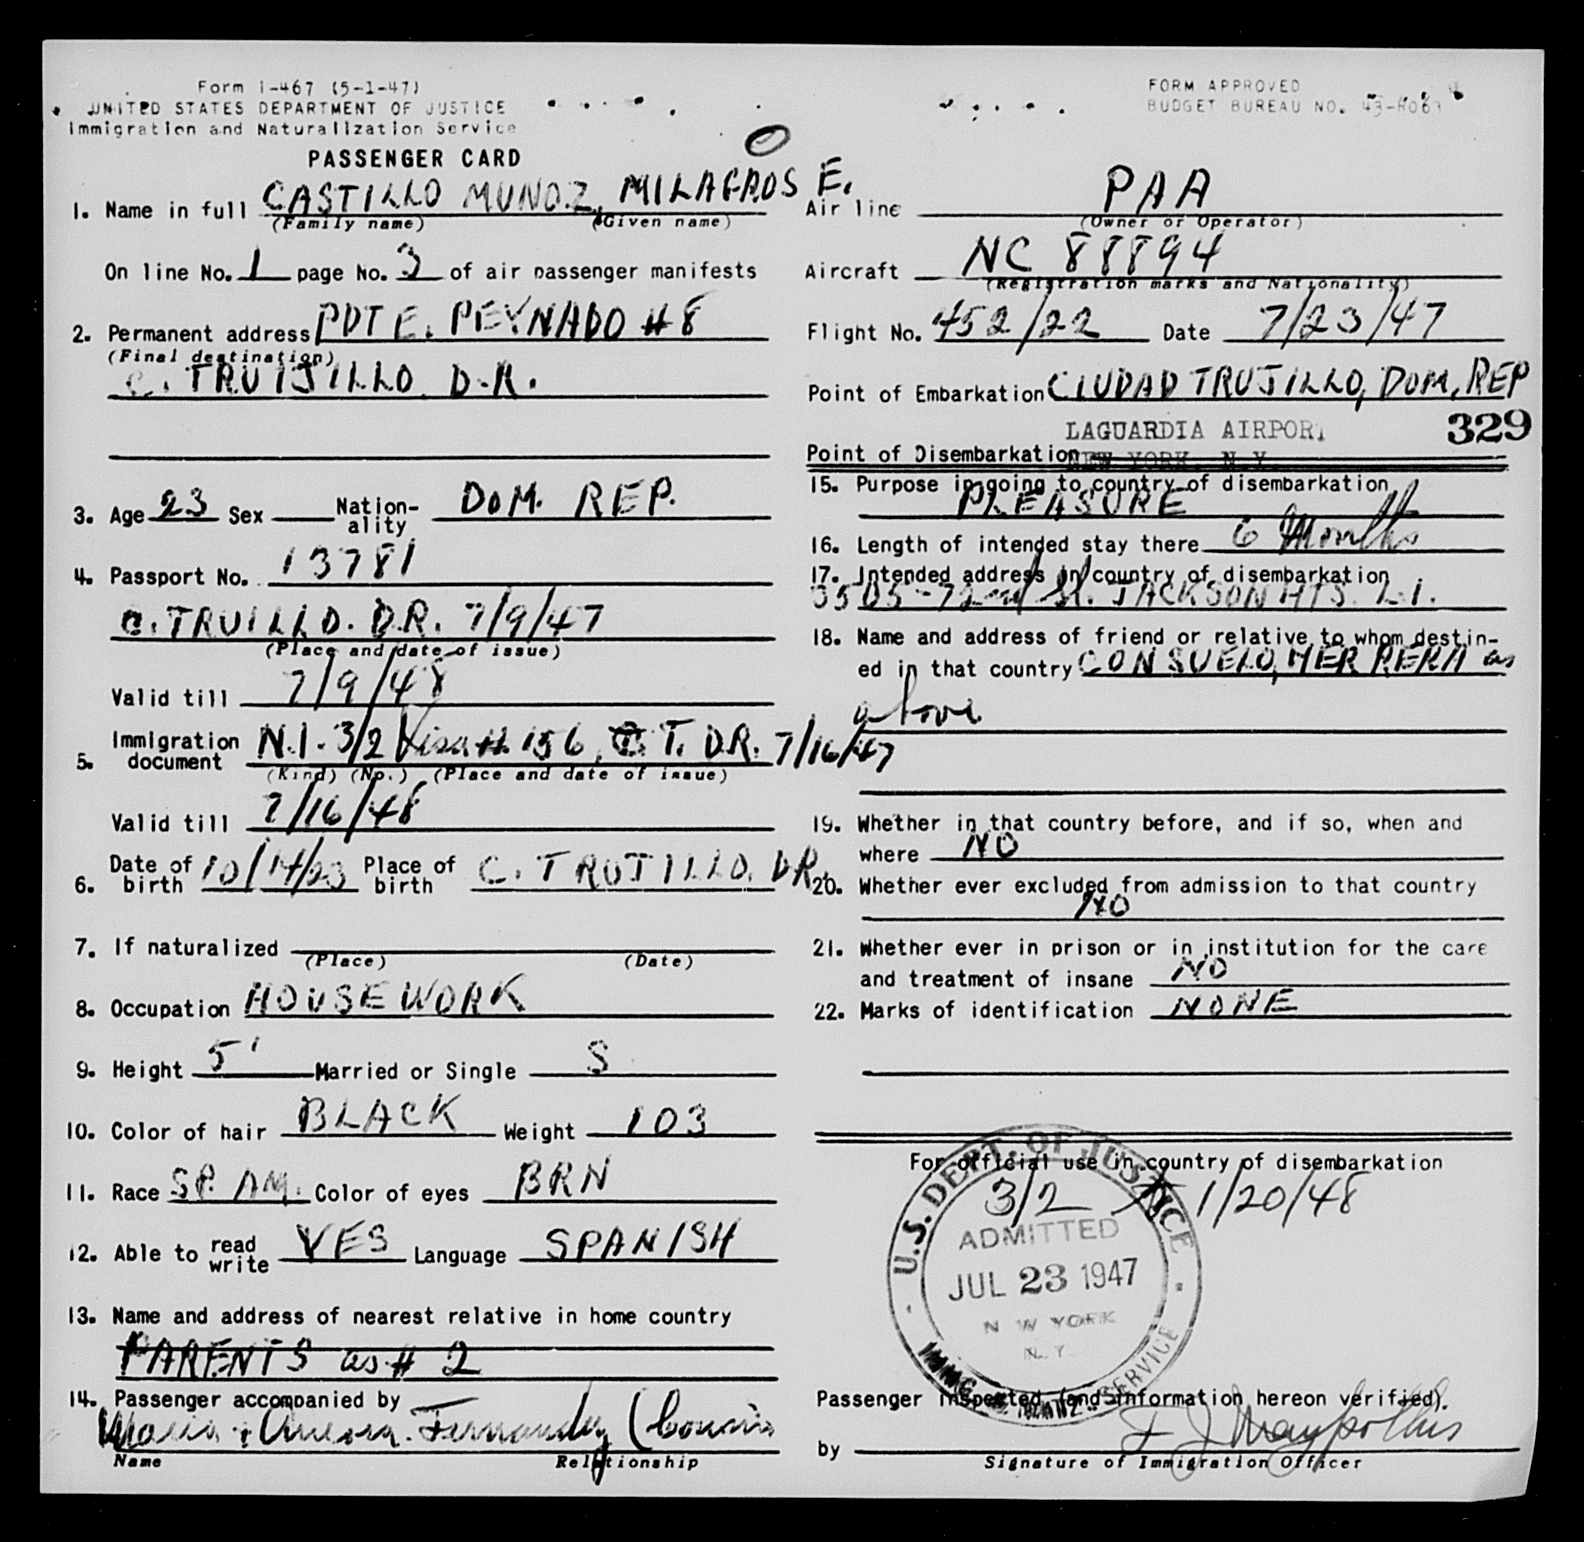 Form I-467 (5-1-47)
UNITED STATES DEPARTMENT OF JUSTICE
Immigration and Naturalization Service
PASSENGER CARD
1. Name in full CASTILLO MUNOZ, MILAGROS E.
(Family name) (Given name)
On line No. 1 page No. 3 of air passenger manifests
2. Permanent address PDTE. PEYNADO #8
(Final destination)
C. TRUIJILLO D.R.
3. Age 23 Sex Nation-ality DOM. REP.
4. Passport No. 13781
C. TRUILLO. D.R. 7/9/47
(Place and date of issue)
Valid till 7/9/48
5. Immigration document N.I. 3/2 Visa # 156, C. T. D.R. 7/16/47
(Kind) (No.) (Place and date of issue)
Valid till 7/16/48
6. Date of birth 10/14/23 Place of birth C. TRUJILLO. DR.
7. If naturalized
(Place) (Date)
8. Occupation HOUSEWORK
9. Height 5' Married or Single S
10. Color of hair BLACK Weight 103
11. Race SP. AM. Color of eyes BRN
12. Able to read write YES Language SPANISH
13. Name and address of nearest relative in home country
PARENTS as # 2
14. Passenger accompanied by
Maria + Aurora Fernandez (Cousins
Name Relationship
FORM APPROVED
BUDGET BUREAU NO. 43-R063
Air line PAA
(Owner or Operator)
Aircraft NC 88894
(Registration marks and Nationality)
Flight No. 452/22 Date 7/23/47
Point of Embarkation CIUDAD TRUJILLO, DOM, REP
LAGUARDIA AIRPORT 329
Point of Disembarkation NEW YORK, N.Y.
15. Purpose in going to country of disembarkation
PLEASURE
16. Length of intended stay there 6 Months
17. Intended address in country of disembarkation
3505-72nd St. JACKSON HTS. L.I.
18. Name and address of friend or relative to whom destin-
ed in that country CONSUELO, HERRERA as
above
19. Whether in that country before, and if so, when and
where NO
20. Whether ever excluded from admission to that country
NO
21. Whether ever in prison or in institution for the care
and treatment of insane NO
22. Marks of identification NONE
For official use in country of disembarkation
3/2 1/20/48
U.S. DEPT. OF JUSTICE
ADMITTED
JUL 23 1947
N W YORK
N.Y.
IMMIG. & NATZ. SERVICE
Passenger inspected (and information hereon verified).
by
Signature of Immigration Officer